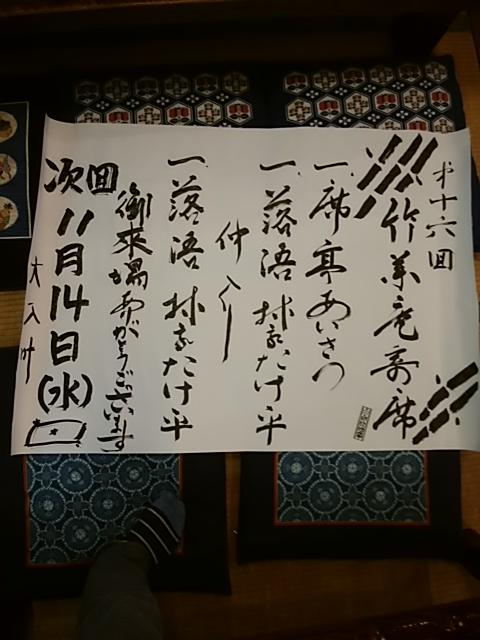 第十六回
竹葉庵寄席
一、席亭あいさつ
一、落語 林家たけ平
仲入り
一、落語 林家たけ平
御来場ありがとうございます
次回11月14日(水)
大入叶